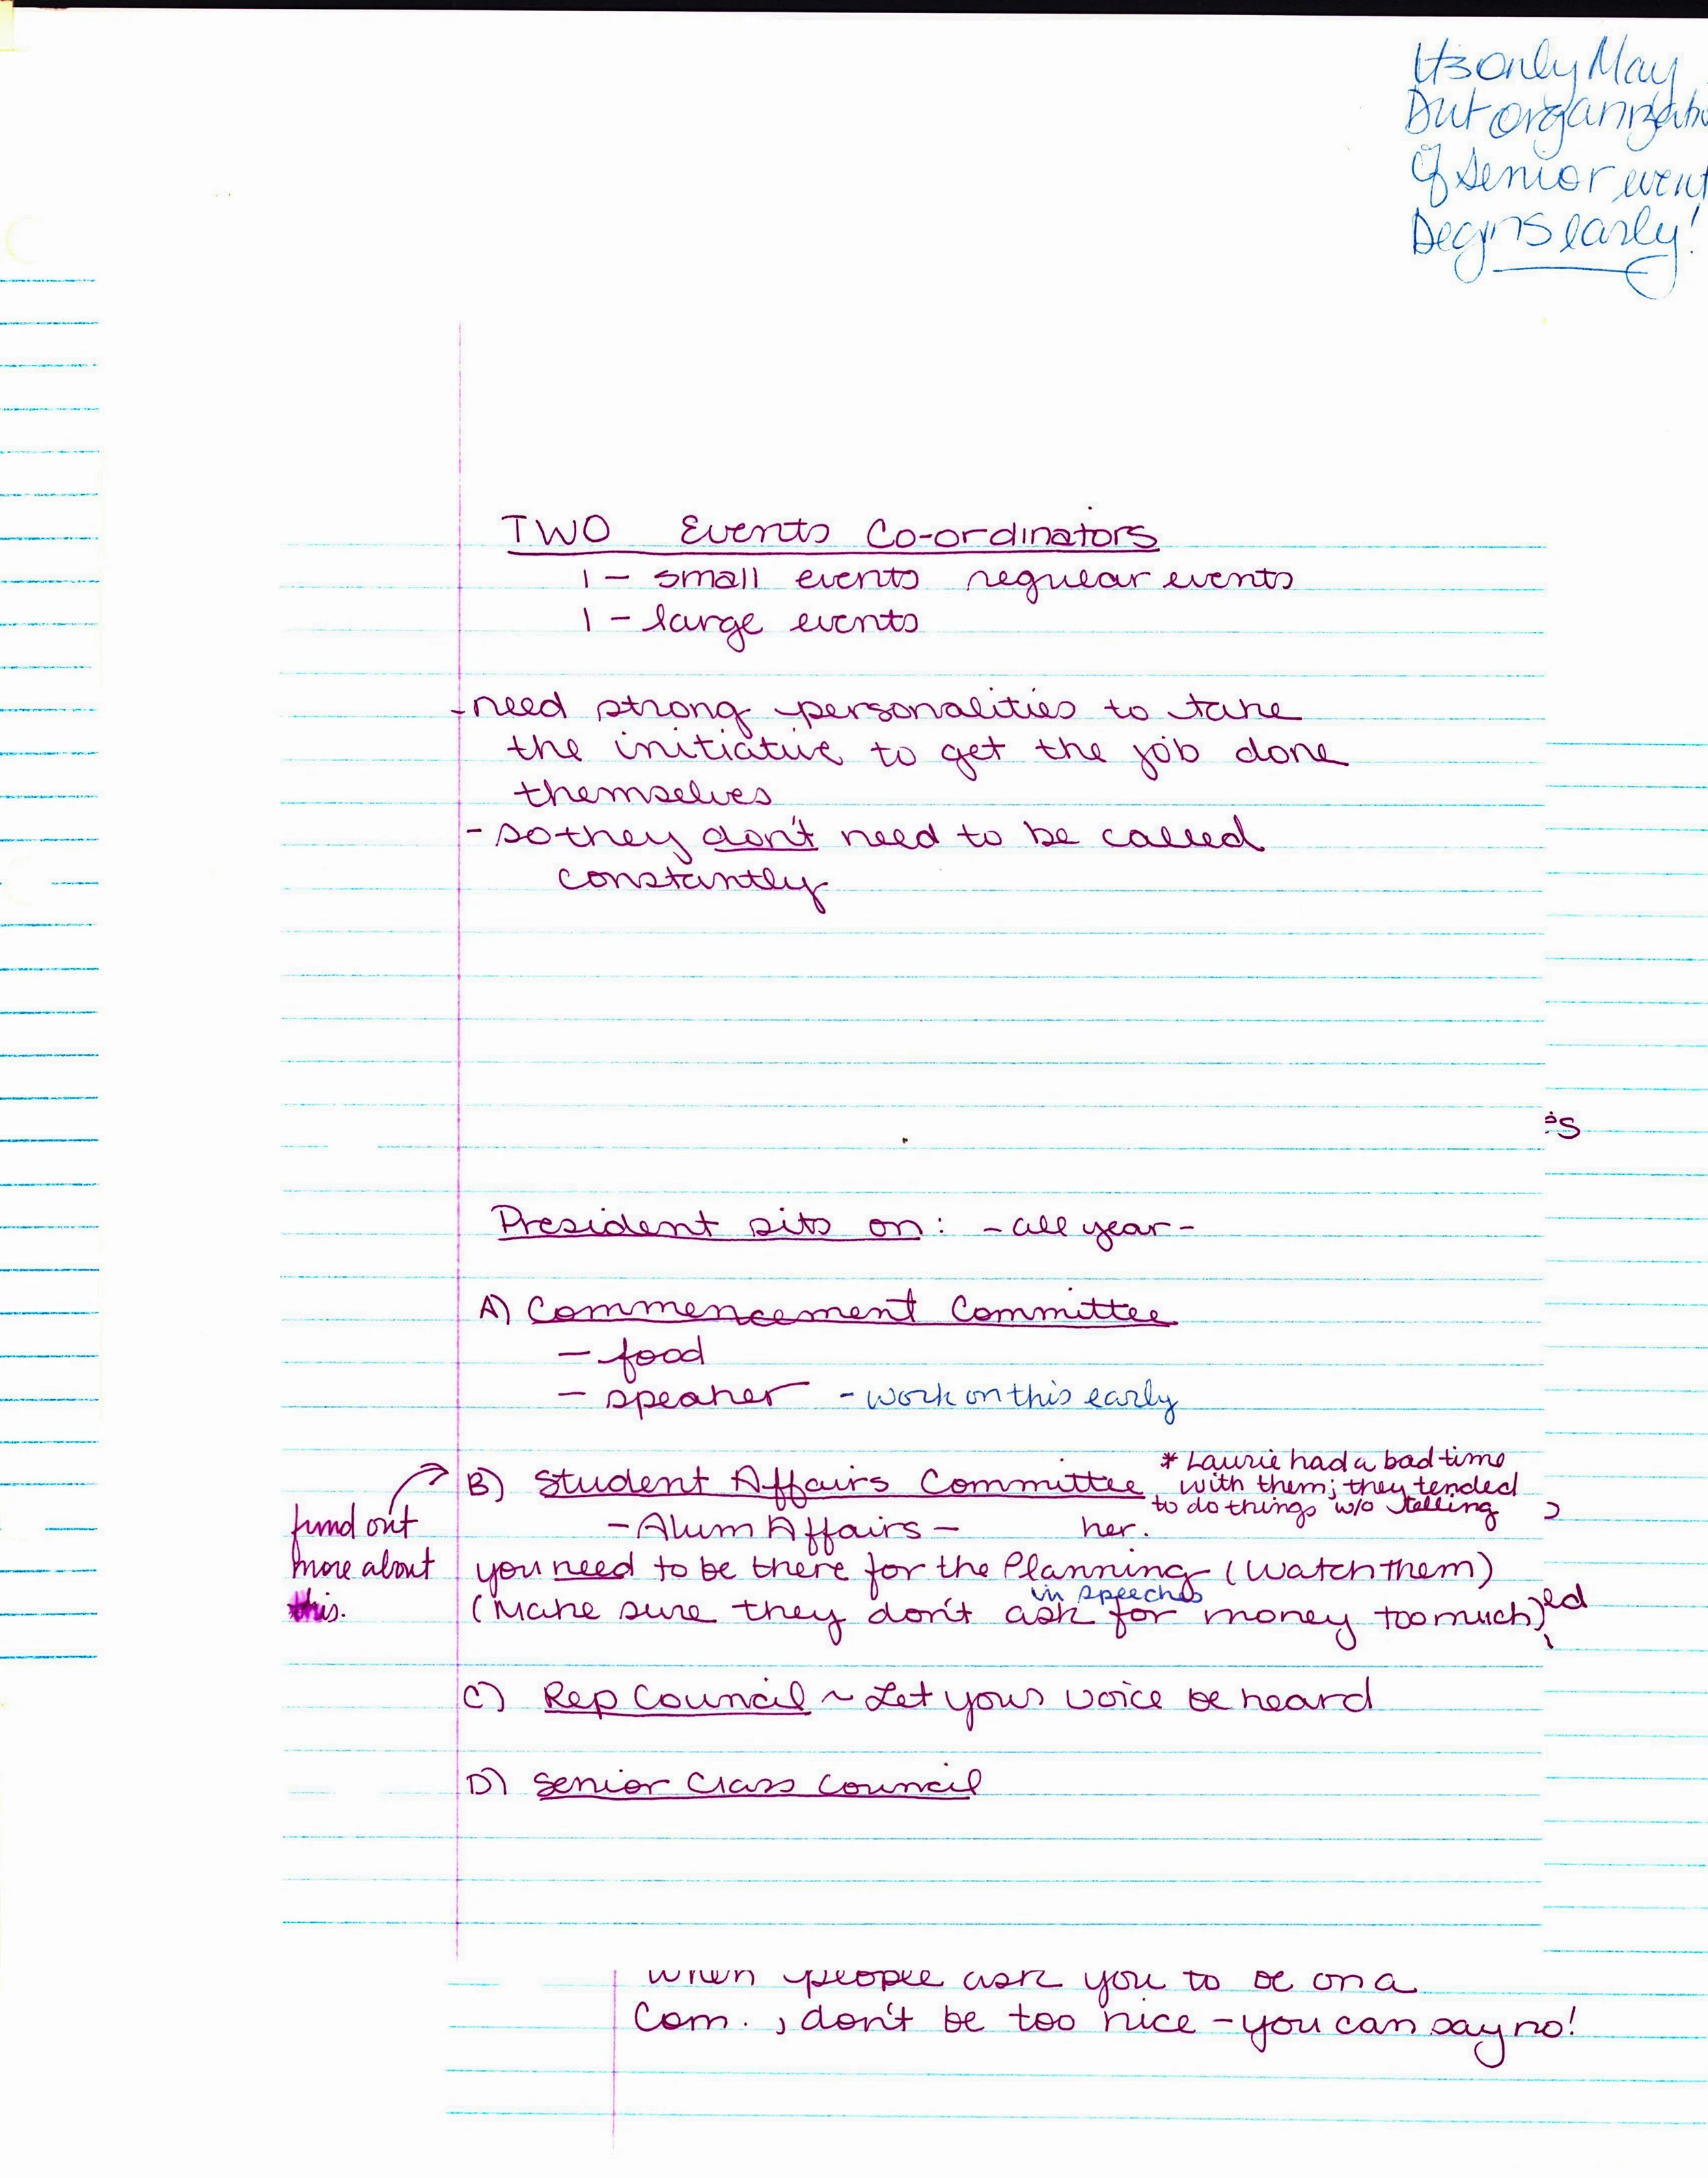 Its only May
But
Of Senior
Begins early!
TWO Events Co-ordinators
1 - small events regular events
1 - large events
- need strong personalities to take
the initiative to get the job done
themselves
- so they don't need to be called
constantly
President sits on: - all year -
A) Commencement Committee
- food
- speaker - work on this early
* Laurie had a bad time
B) Student Affairs Committee with them; they tended
to do things w/o telling
find out - Alum Affairs - her.
more about you need to be there for the Planning (watch them)
in speeches
this. (Make sure they don't ask for money too much)
C) Rep Council ~ Let your voice be heard
D) Senior Class Council
when people ask you to be on a
Com., don't be too nice - you can say no!